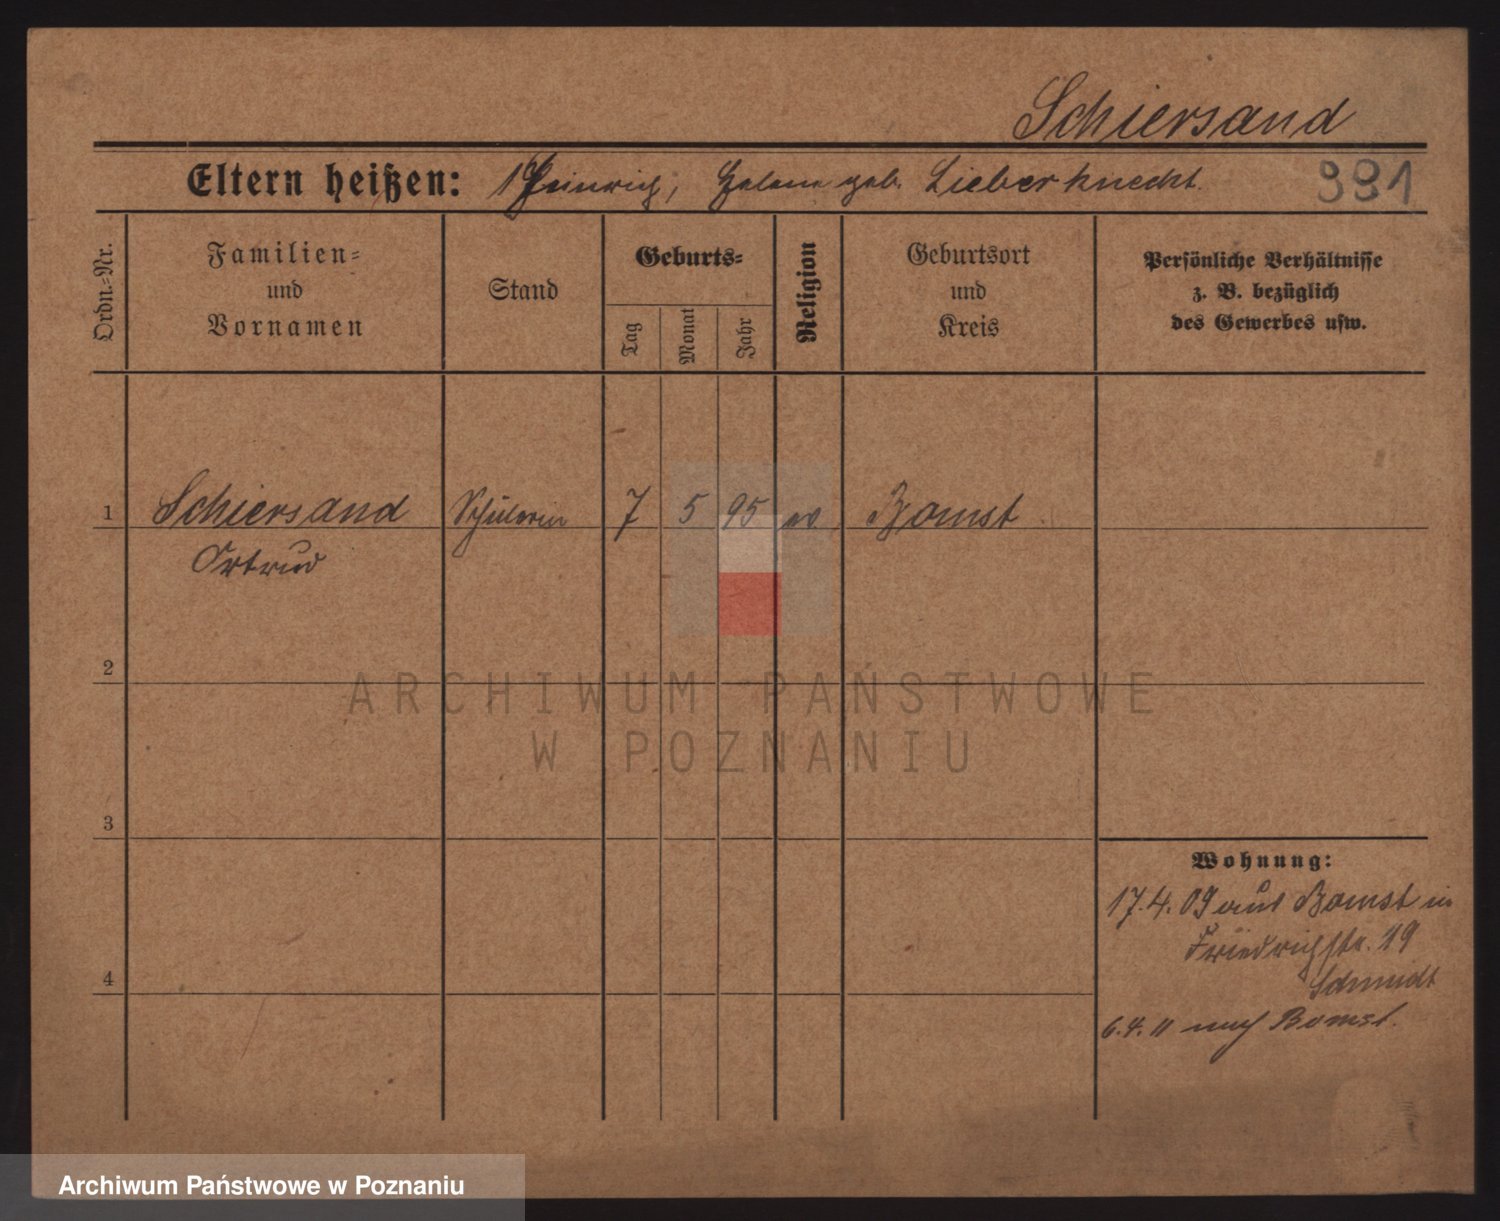 Schiersand
Eltern heißen: 1 Heinrich, Helene geb. Lieberknecht.
991
Ordn.-Nr.
Familien-
und
Vornamen
Stand
Geburts-
Tag
Monat
Jahr
Religion
Geburtsort
und
Kreis
Persönliche Verhältnisse
z. B. bezüglich
des Gewerbes usw.
1 Schiersand Schülerin 7 5 95 ev Bomst
Ortrud
2
ARCHIWUM PAŃSTWOWE
W POZNANIU
3
Wohnung:
17.4.09 aus Bomst in
Friedrichstr. 19
Schmidt
4
6.4.11 nach Bomst.
Archiwum Państwowe w Poznaniu